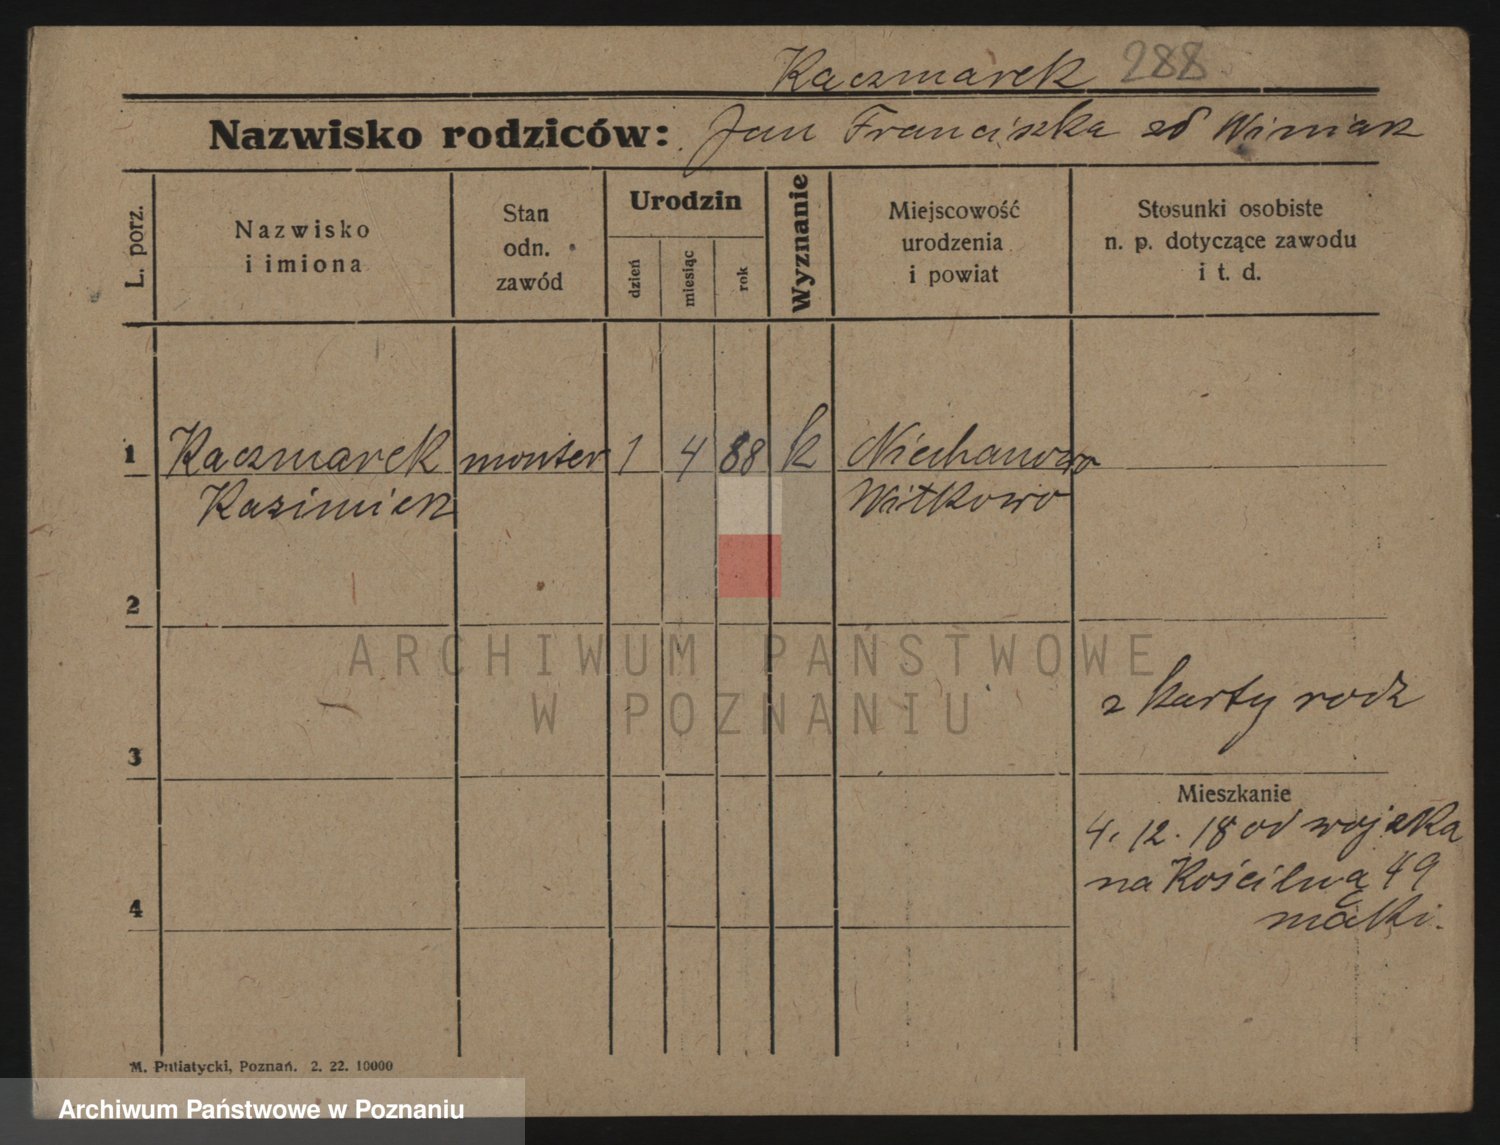 Kaczmarek 288
Nazwisko rodziców: Jan Franciszka Winiak
L. porz.
Nazwisko
i imiona
Stan
odn.
zawód
Urodzin
dzień
miesiąc
rok
Wyznanie
Miejscowość
urodzenia
i powiat
Stosunki osobiste
n. p. dotyczące zawodu
i t. d.
1 Kaczmarek monter 1 4 88 k Niechanowo
Kazimierz Witkowo
2
z karty rodz
3
Mieszkanie
4. 12. 18 od wojska
na 49
4
matki.
M. Putiatycki, Poznań. 2. 22. 10000
ARCHIWUM PAŃSTWOWE
W POZNANIU
Archiwum Państwowe w Poznaniu